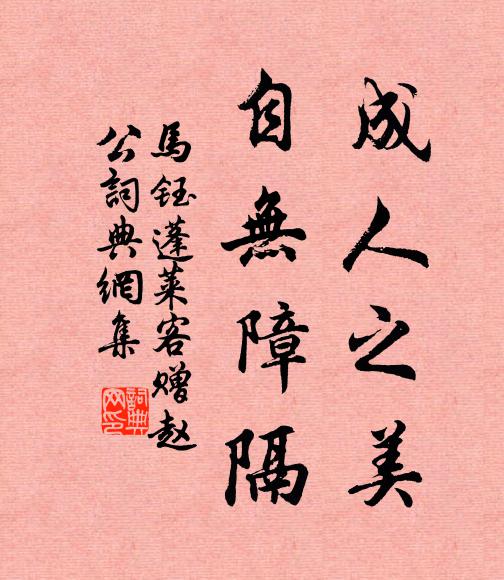 成人之美
自無障隔
馬鈺蓬萊客贈赵
公詞典網集
詞典
网印